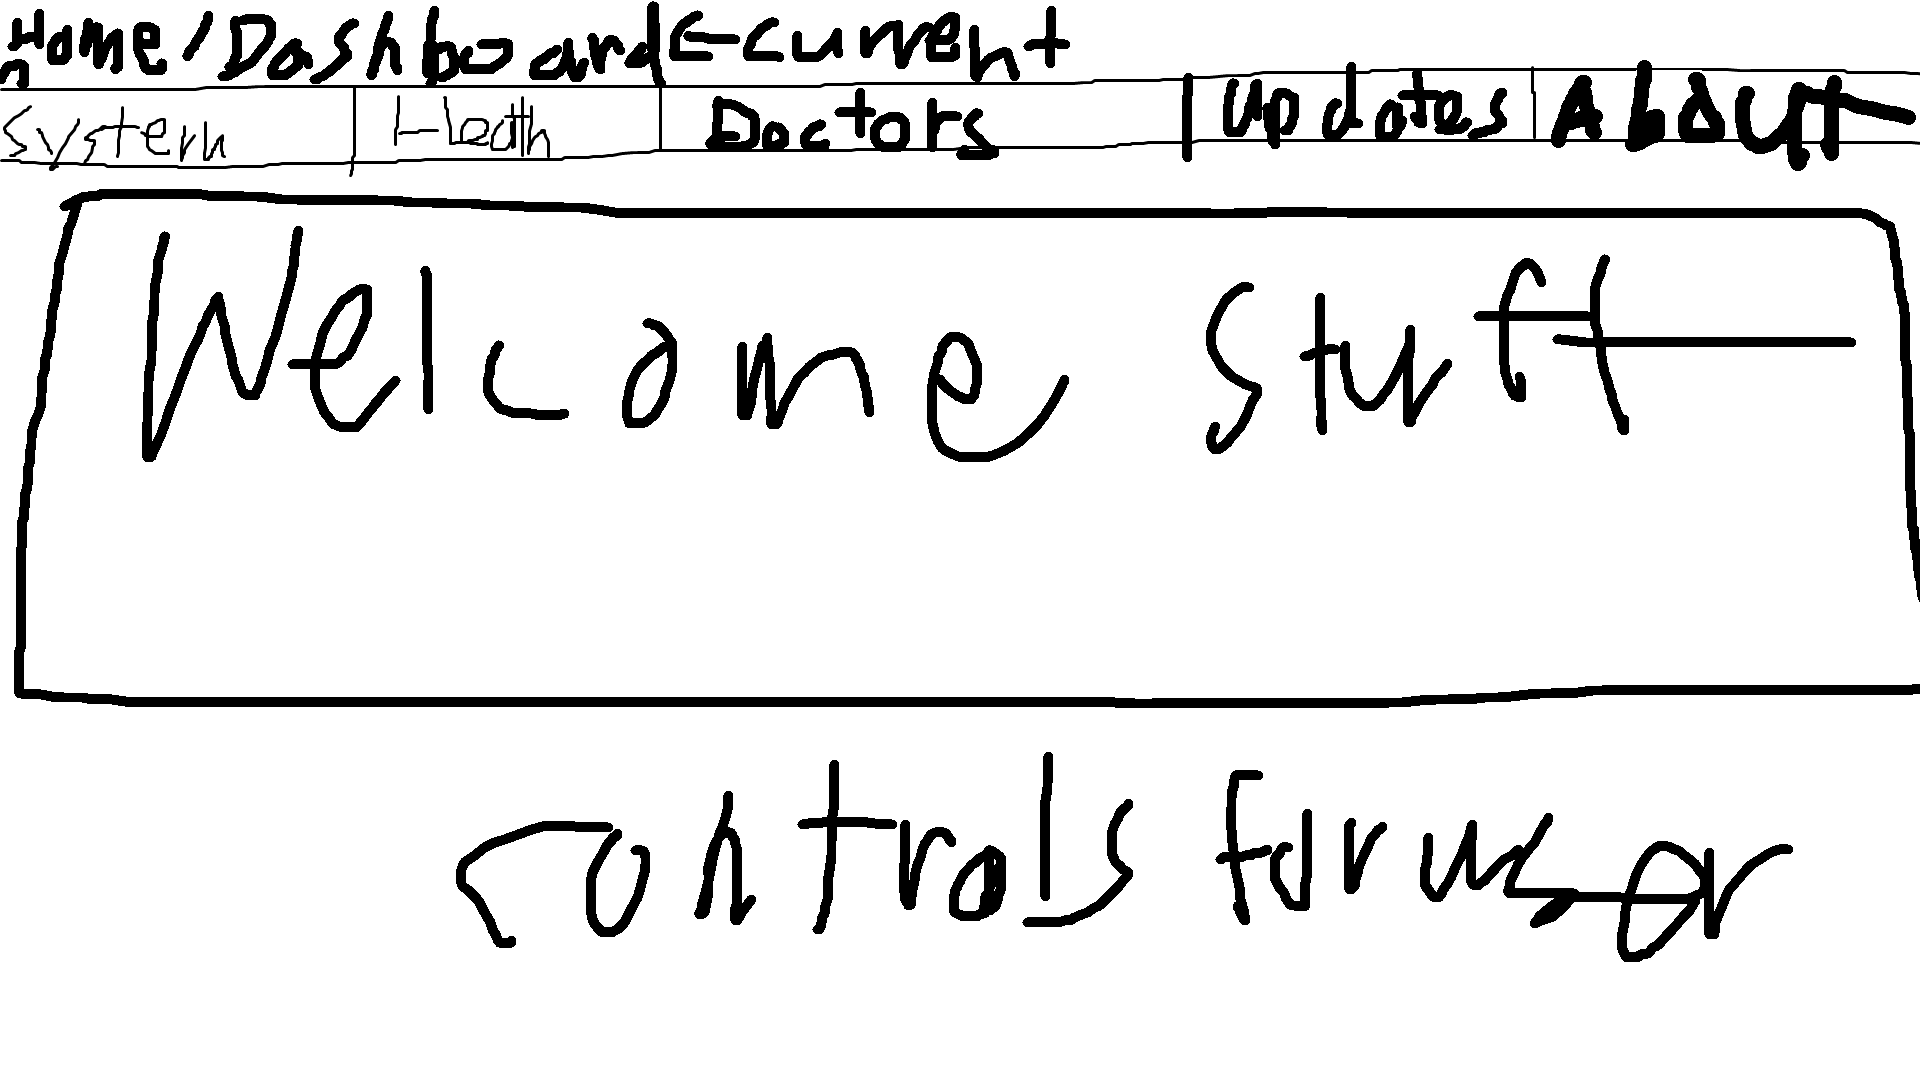 Home/Dashboard ← current
System Health Doctors Updates About
Welcome Stuff
controls for user